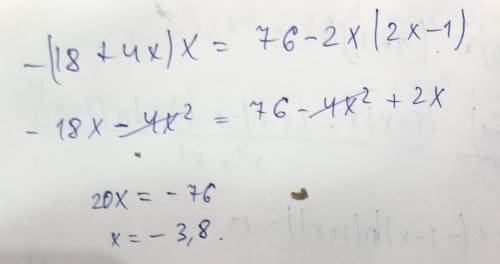 -(18 + 4x)x = 76 - 2x(2x-1)
- 18x - 4x² = 76 - 4x² + 2x
20x = - 76
x = - 3,8.